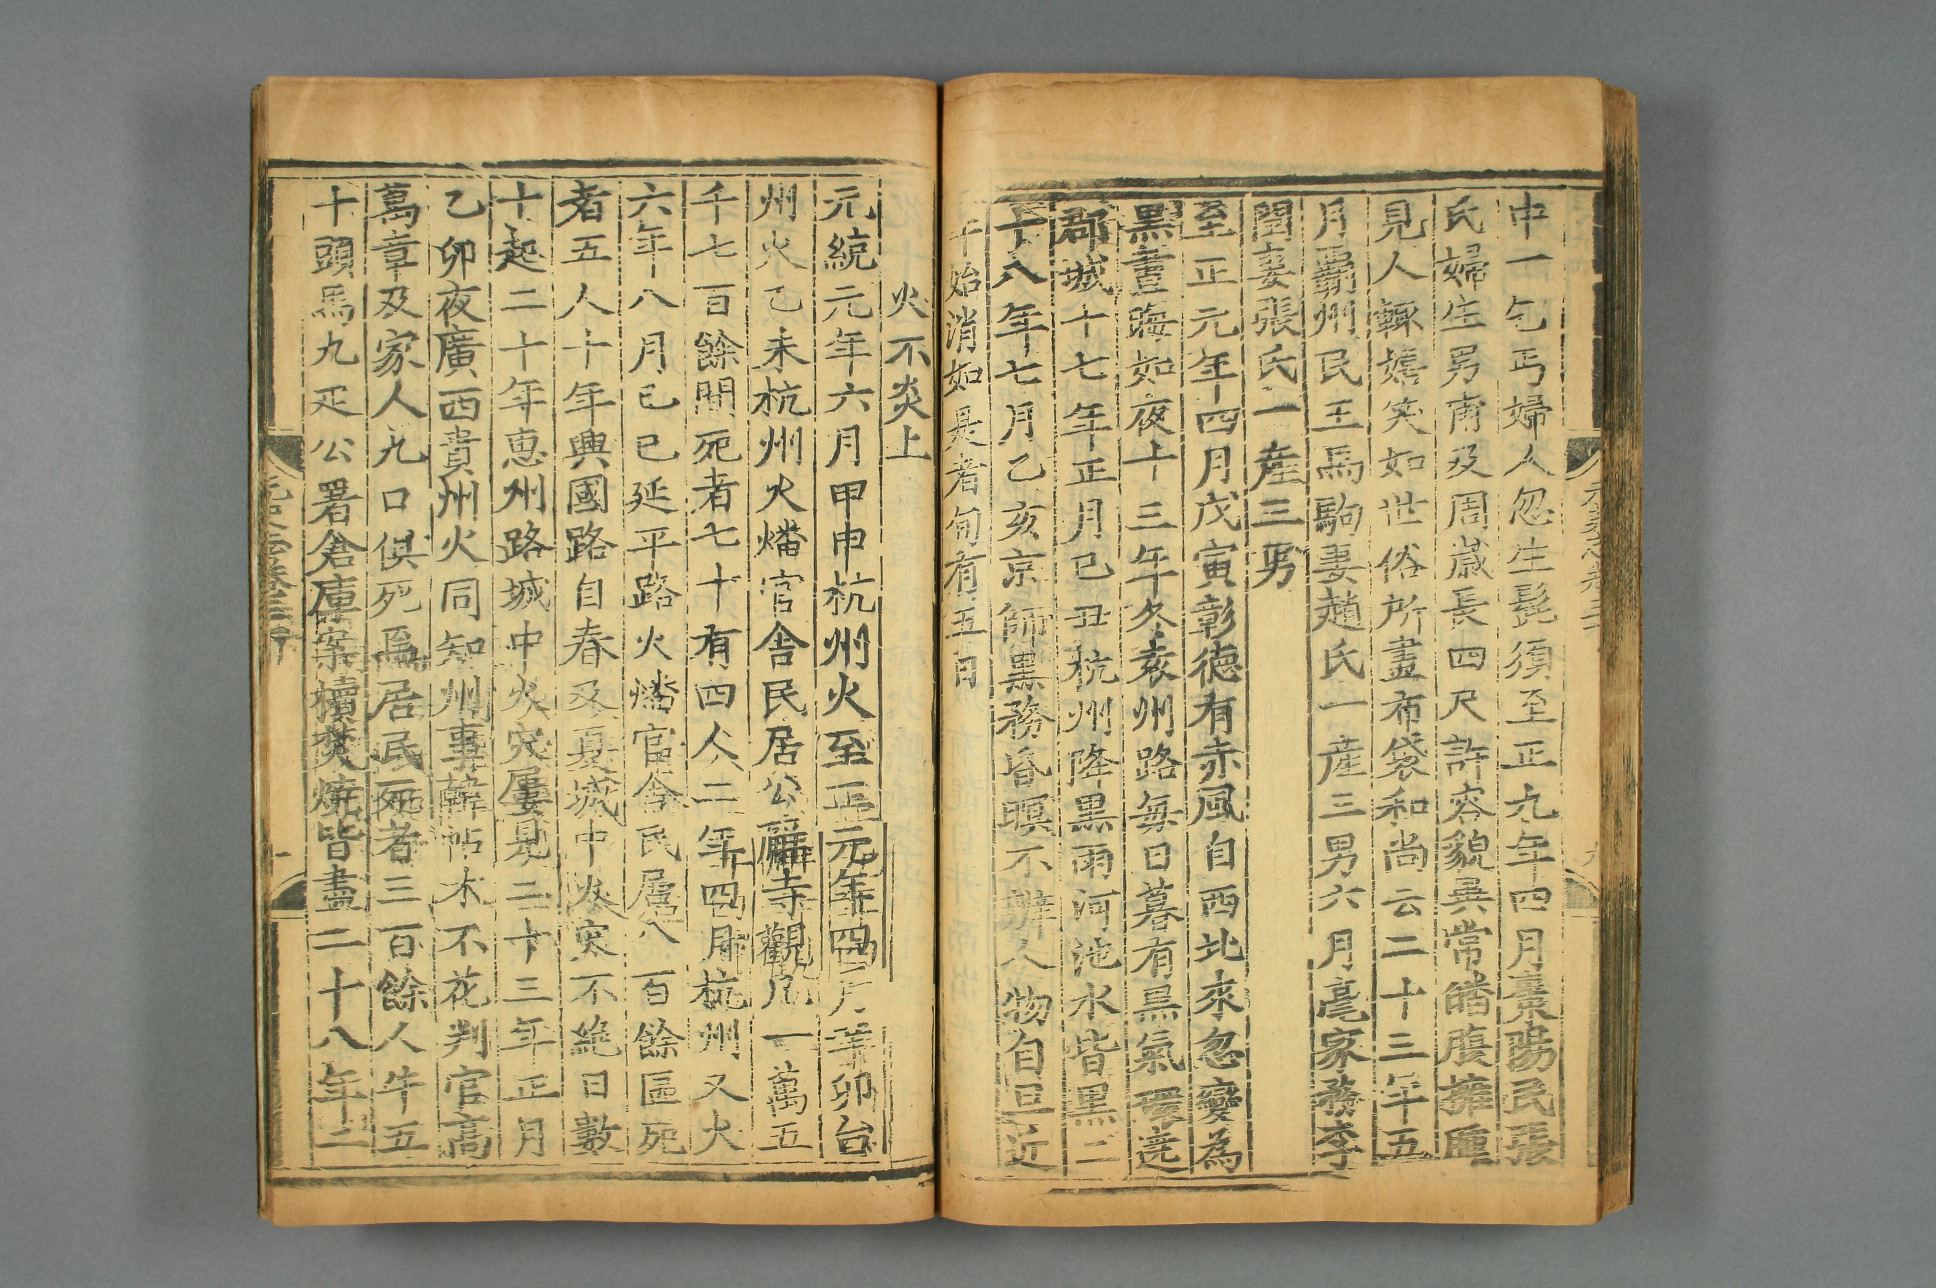 中一乞丐婦人忽生髭須至正九年四月棗陽民張
氏婦生男甫及周歲長四尺許容貌異常皤腹擁腫
見人輒嬉笑如世俗所畫布袋和尚云二十三年五
月霸州民王馬駒妻趙氏一產三男六月亳家務李
閏妻張氏一產三男
至正元年四月戊寅彰德有赤風自西北來忽變為
黑晝晦如夜十三年冬袁州路每日暮有黑氣環遶
郡城十七年正月己丑杭州降黑雨河池水皆黑二
十八年七月乙亥京師黑霧昏暝不辨人物自旦近
午始消如是者旬有五日
火不炎上
元統元年六月甲申杭州火至正元年四月辛卯台
州火乙未杭州火燔官舍民居公廨寺觀凡一萬五
千七百餘間死者七十有四人二年四月杭州又火
六年八月己巳延平路火燔官舍民居八百餘區死
者五人十年興國路自春及夏城中火災不絕日數
十起二十年惠州路城中火災屢見二十三年正月
乙卯夜廣西貴州火同知州事韓帖木不花判官高
萬章及家人九口俱死焉居民死者三百餘人牛五
十頭馬九疋公署倉庫案牘焚燒皆盡二十八年二